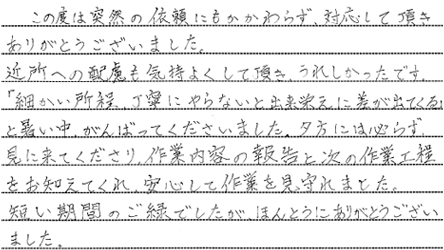 この度は突然の依頼にもかかわらず、対応して頂き
ありがとうございました。
近所への配慮も気持よくして頂き、うれしかったです。
「細かい所程、丁寧にやらないと出来栄えに差が出てくる」
と暑い中、がんばってくださいました。夕方には必らず
見に来てくださり、作業内容の報告と次の作業工程
をお知えてくれ、安心して作業を見守れました。
短い期間のご縁でしたが、ほんとうにありがとうござい
ました。